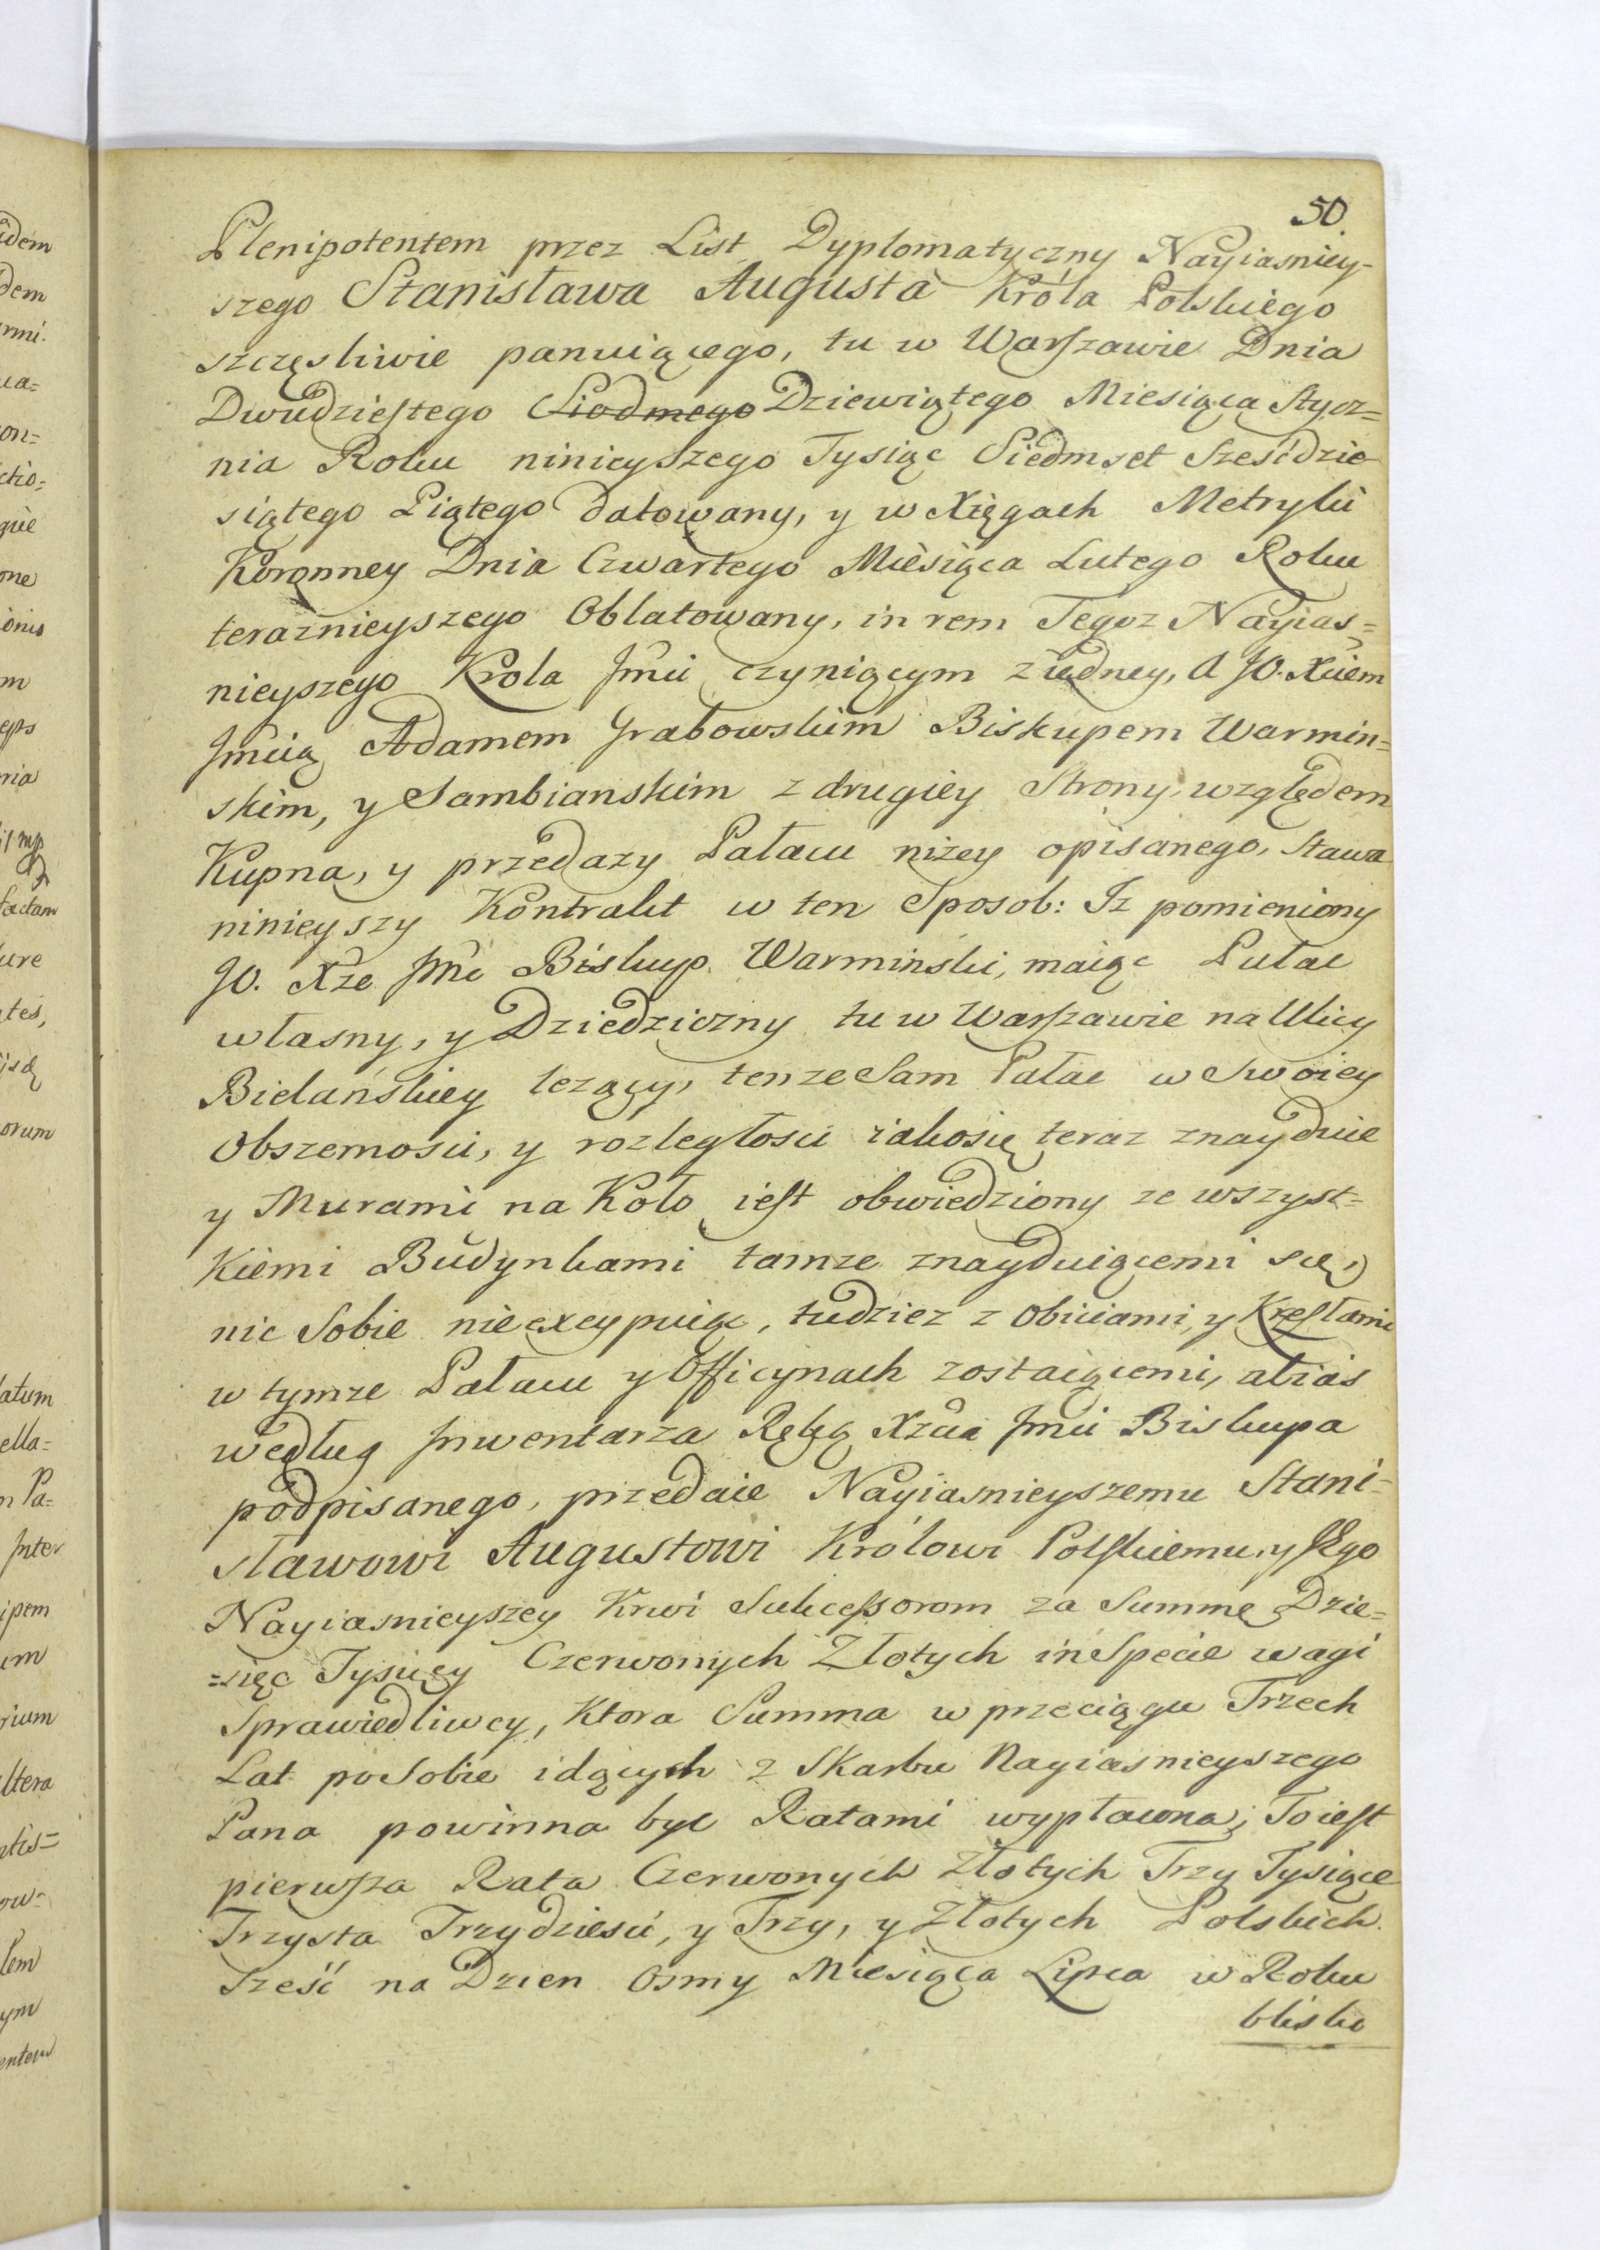 50.
Plenipotentem przez List Dyplomatyczny Nayiasniey-
szego Stanisława Augusta Króla Polskiego
szczęsliwie panuiącego, tu w Warszawie Dnia
Dwudziestego Siodmego Dziewiątego Miesiąca Stycz=
nia Roku ninieyszego Tysiąc Siedmset Sześćdzie
siątego Piątego datowany, y w Xięgach Metryki
Koronney Dnia Czwartego Miesiąca Lutego Roku
teraznieyszego Oblatowany, in rem Tegoz Nayias=
nieyszego Krola Jmci czyniącym z iedney, a JO. Xciem
Jmcią Adamem Grabowskim Biskupem Warmin=
skim, y Sambianskim z drugiey Strony, względem
Kupna, y przedazy Pałacu nizey opisanego, stawa
ninieyszy Kontrakt w ten Sposob: Iz pomieniony
JO. Xże Jmć Biskup Warminski, maiąc Pałac
własny, y Dziedziczny tu w Warszawie na Ulicy
Bielańskiey lezący, tenze Sam Pałac w Swoiey
Obszernosci, y rozległosci iako się teraz znayduie
y Murami na Koło iest obwiedziony ze wszyst=
kiemi Budynkami tamze znayduiącemi się,
nic Sobie nieexcypuiąc, tudziez z Obiciami, y Krzesłami
w tymze Pałacu y Officynach zostaiącemi, alias
według Jnwentarza Ręką Xżcia Jmci Biskupa
podpisanego, przedaie Nayiasnieyszemu Stani-
sławowi Augustowi Królowi Polskiemu, y Jego
Nayiasnieyszey Krwi Sukcessorom za Summę Dzie=
=sięc Tysięcy Czerwonych Złotych in Specie wagi
Sprawiedliwey, Ktora Summa w przeciągu Trzech
Lat po Sobie idących z Skarbu Nayiasnieyszego
Pana powinna być Ratami wypłacona; To iest
pierwsza Rata Czerwonych Złotych Trzy Tysiące
Trzysta Trzydziesci, y Trzy, y Złotych Polskich
Sześć na Dzien Osmy Miesiąca Lipca w Roku
blisko